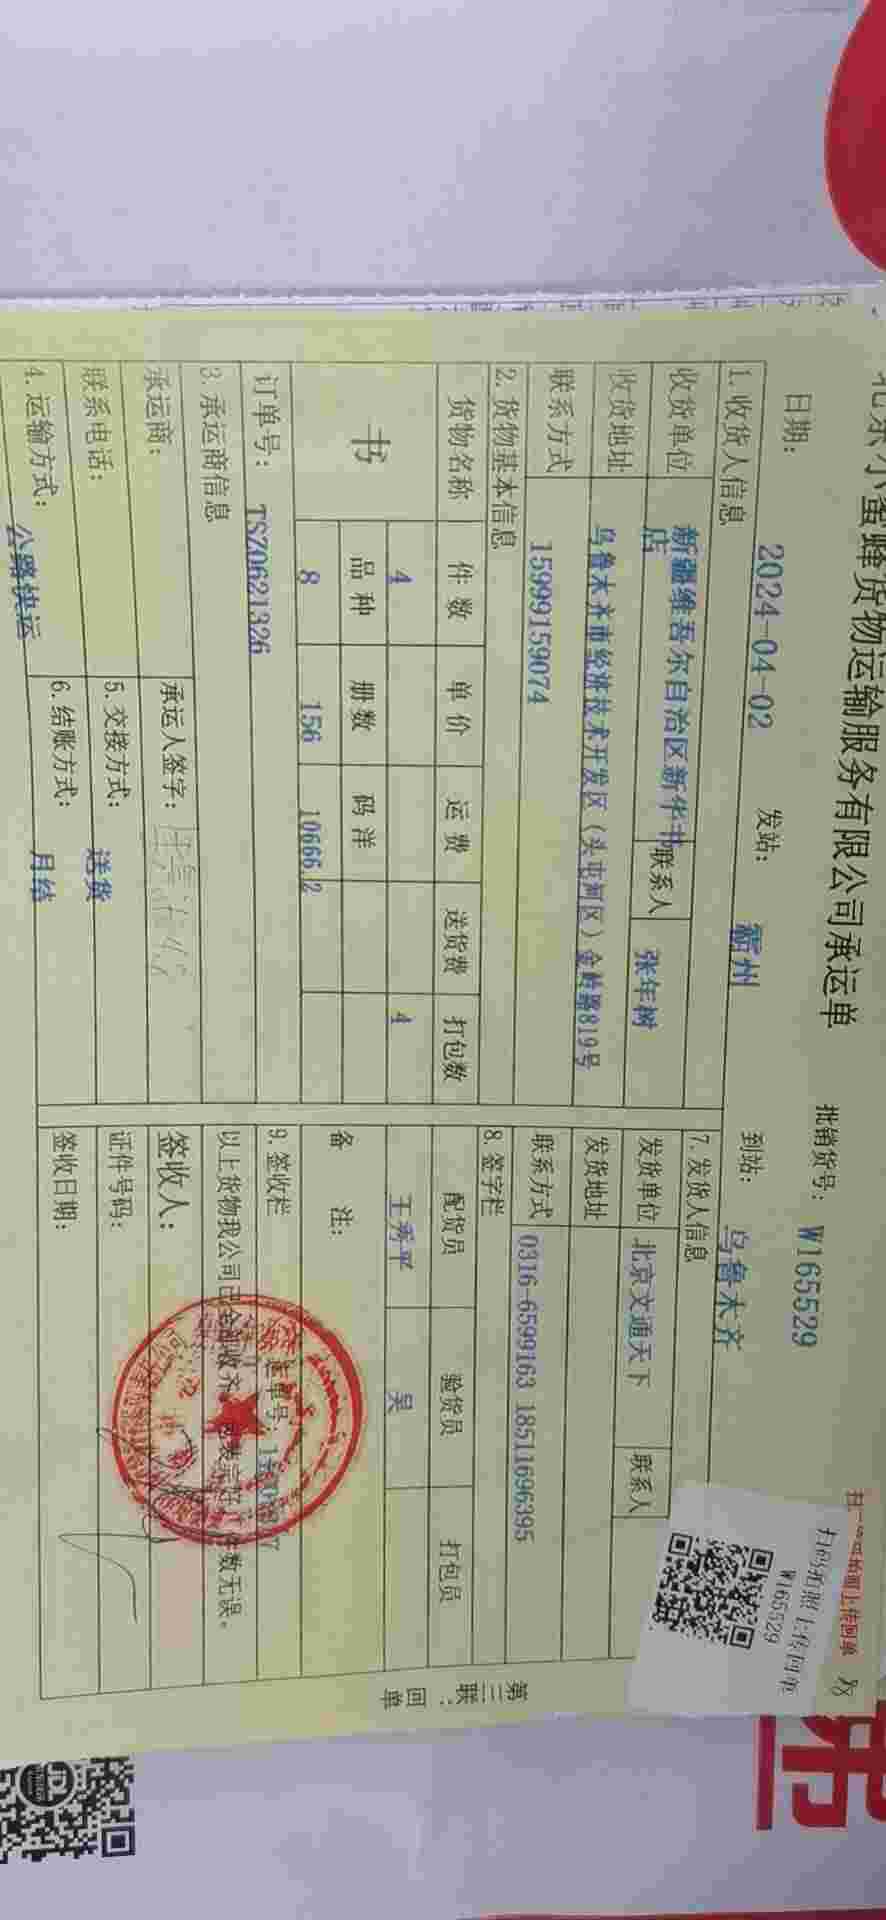 北京小蜜蜂货物运输服务有限公司承运单
批销货号: W165529
日期: 2024-04-02 发站: 霸州 到站: 乌鲁木齐
1. 收货人信息
收货单位 新疆维吾尔自治区新华书店 联系人 张年树
收货地址 乌鲁木齐市经济技术开发区(头屯河区)金岭路819号
联系方式 15999159074
2. 货物基本信息
货物名称 件数 单价 运费 送货费 打包数
书 4 4
品种 册数 码洋
8 156 10666.2
订单号: TSZ0621326
3. 承运商信息
承运商: 承运人签字:
联系电话: 5. 交接方式: 送货
4. 运输方式: 公路快运 6. 结账方式: 月结
7. 发货人信息
发货单位 北京文通天下 联系人
发货地址
联系方式 0316-6599163 18511696395
8. 签字栏
配货员 验货员 打包员
王秀平 吴
备注:
9. 签收栏
以上货物我公司已全部收齐,包装完好,件数无误。
签收人:
证件号码:
签收日期:
第三联:回单
扫码拍照上传回单
W165529